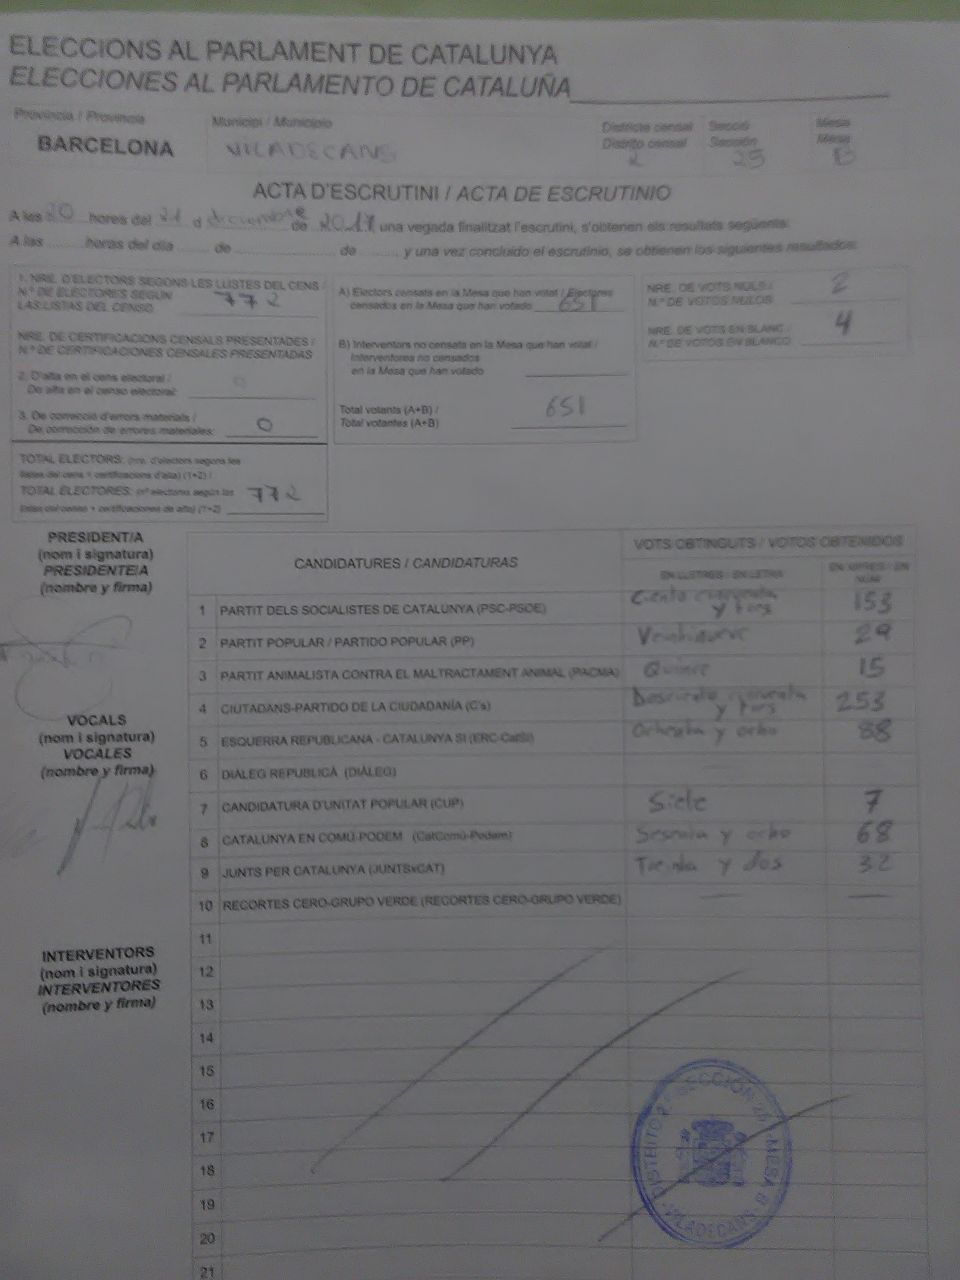 ELECCIONS AL PARLAMENT DE CATALUNYA
ELECCIONES AL PARLAMENTO DE CATALUÑA
Província / Provincia
Municipi / Municipio
Districte censal
Distrito censal
Secció
Sección
Mesa
Mesa
BARCELONA
VILADECANS
2
25
B
ACTA D'ESCRUTINI / ACTA DE ESCRUTINIO
A les 20 hores del 21 d diciembre de 2017 una vegada finalitzat l'escrutini, s'obtenen els resultats següents:
A las ........ horas del día ....... de ..................... de ........ y una vez concluido el escrutinio, se obtienen los siguientes resultados:
1. NRE. D'ELECTORS SEGONS LES LLISTES DEL CENS /
N.º DE ELECTORES SEGÚN
LAS LISTAS DEL CENSO
772
NRE. DE CERTIFICACIONS CENSALS PRESENTADES /
N.º DE CERTIFICACIONES CENSALES PRESENTADAS
2. D'alta en el cens electoral /
De alta en el censo electoral:
0
3. De correcció d'errors materials /
De corrección de errores materiales:
0
TOTAL ELECTORS: (nre. d'electors segons les
llistes del cens + certificacions d'alta) (1+2) /
TOTAL ELECTORES: (nº electores según las
listas del censo + certificaciones de alta) (1+2)
772
A) Electors censats en la Mesa que han votat / Electores
censados en la Mesa que han votado
651
B) Interventors no censats en la Mesa que han votat /
Interventores no censados
en la Mesa que han votado
Total votants (A+B) /
Total votantes (A+B)
651
NRE. DE VOTS NULS /
N.º DE VOTOS NULOS
2
NRE. DE VOTS EN BLANC /
N.º DE VOTOS EN BLANCO
4
PRESIDENT/A
(nom i signatura)
PRESIDENTE/A
(nombre y firma)
VOCALS
(nom i signatura)
VOCALES
(nombre y firma)
INTERVENTORS
(nom i signatura)
INTERVENTORES
(nombre y firma)
CANDIDATURES / CANDIDATURAS
VOTS OBTINGUTS / VOTOS OBTENIDOS
EN LLETRES / EN LETRA
EN XIFRES / EN NÚM.
1 PARTIT DELS SOCIALISTES DE CATALUNYA (PSC-PSOE) Ciento cincuenta y tres 153
2 PARTIT POPULAR / PARTIDO POPULAR (PP) Veintinueve 29
3 PARTIT ANIMALISTA CONTRA EL MALTRACTAMENT ANIMAL (PACMA) Quince 15
4 CIUTADANS-PARTIDO DE LA CIUDADANÍA (C's) Doscientos cincuenta y tres 253
5 ESQUERRA REPUBLICANA - CATALUNYA SÍ (ERC-CatSí) Ochenta y ocho 88
6 DIÀLEG REPUBLICÀ (DIÀLEG)
7 CANDIDATURA D'UNITAT POPULAR (CUP) Siete 7
8 CATALUNYA EN COMÚ-PODEM (CatComú-Podem) Sesenta y ocho 68
9 JUNTS PER CATALUNYA (JUNTSxCAT) Treinta y dos 32
10 RECORTES CERO-GRUPO VERDE (RECORTES CERO-GRUPO VERDE)
11
12
13
14
15
16
17
18
19
20
21
DISTRITO 2 SECCION 25 MESA B
VILADECANS